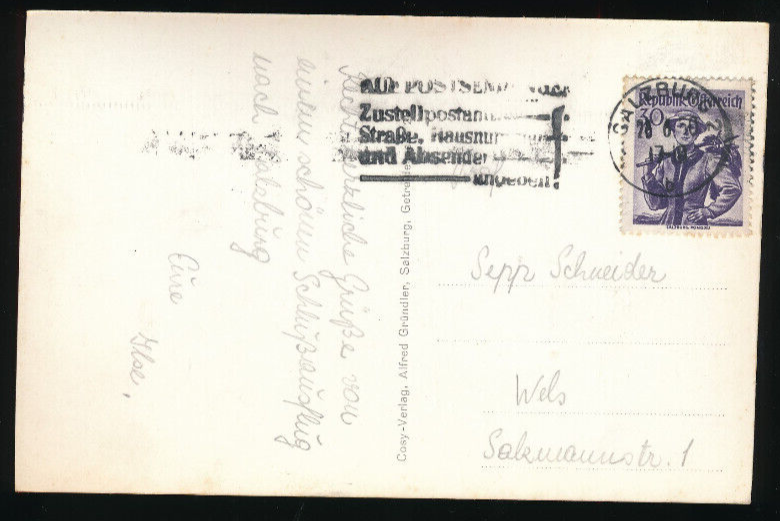 Recht herzliche Grüße von
einem schönen Schlußausflug
nach Salzburg
Eure
Ilse.
Cosy-Verlag, Alfred Gründler, Salzburg,
AUF POSTSENDUNGEN
Zustellpostamt
Straße, Hausnummer
und Absender
angeben!
SALZBURG
17
Republik Österreich
30
SALZBURG, PONGAU
Sepp Schneider
Wels
Salzmannstr. 1